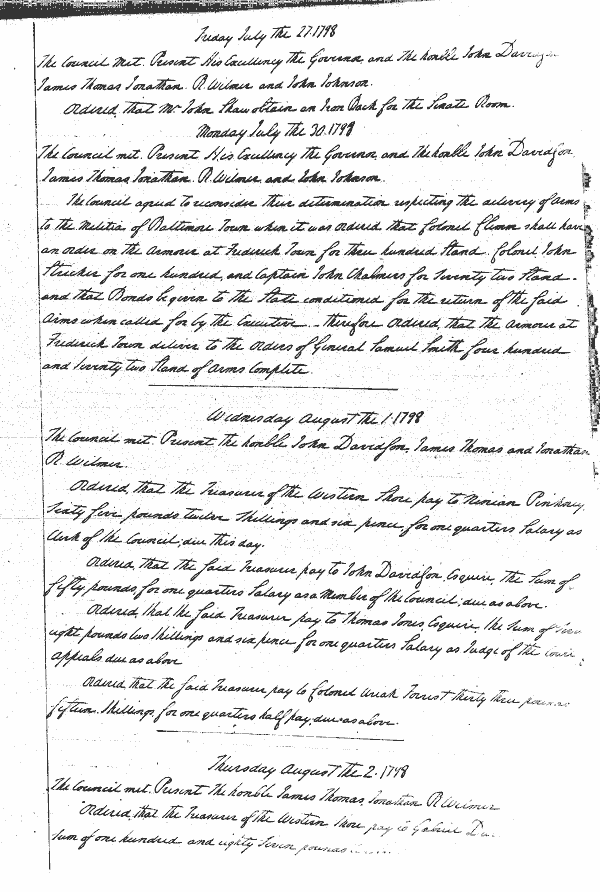 Friday July the 27. 1798
The Council met. Present His Excellency the Governor, and the honble John
James Thomas Jonathan. R. Wilmer and John Johnson.
Ordered, that Mr John Shaw obtain an Iron Back for the Senate Room.
Monday July the 30. 1798
The Council met. Present His Excellency the Governor, and the honble John Davidson
James Thomas, Jonathan R. Wilmer and John Johnson.
The Council agreed to reconsider their determination respecting the delivery of Arms
to the Militia of Baltimore Town when it was ordered that Colonel Clemm shall have
an order on the Armourer at Frederick Town for three hundred Stand. Colonel John
Stricker for one hundred, and Captain John Chalmers for Seventy two Stand -
and that Bonds be given to the State conditioned for the return of the said
Arms when called for by the Executive - therefore Ordered, that the Armourer at
Frederick Town deliver to the orders of General Samuel Smith four hundred
and Seventy two Stand of Arms complete.
Wednesday August the 1. 1798
The Council met. Present the honble John Davidson, James Thomas and Jonathan
R. Wilmer.
Ordered, that the Treasurer of the Western Shore pay to Ninian Pinkney,
Sixty five pounds twelve Shillings and six pence, for one quarters Salary as
Clerk of the Council; due this day.
Ordered, that the said Treasurer pay to John Davidson, Esquire, the Sum of
fifty pounds, for one quarters Salary as a Member of the Council; due as above.
Ordered, that the said Treasurer pay to Thomas Jones Esquire, the Sum of
eight, pounds two Shillings and six pence for one quarters Salary as Judge of the
Appeals due as above
Ordered, that the said Treasurer pay to Colonel Uriah Forrest thirty three pounds
fifteen Shillings, for one quarters half pay, due as above.
Thursday August the 2. 1798
The Council met. Present The honble James Thomas, Jonathan R Wilmer
Ordered, that the Treasurer of the Western Shore pay to Gabriel
Sum of one hundred and eighty Seven pounds